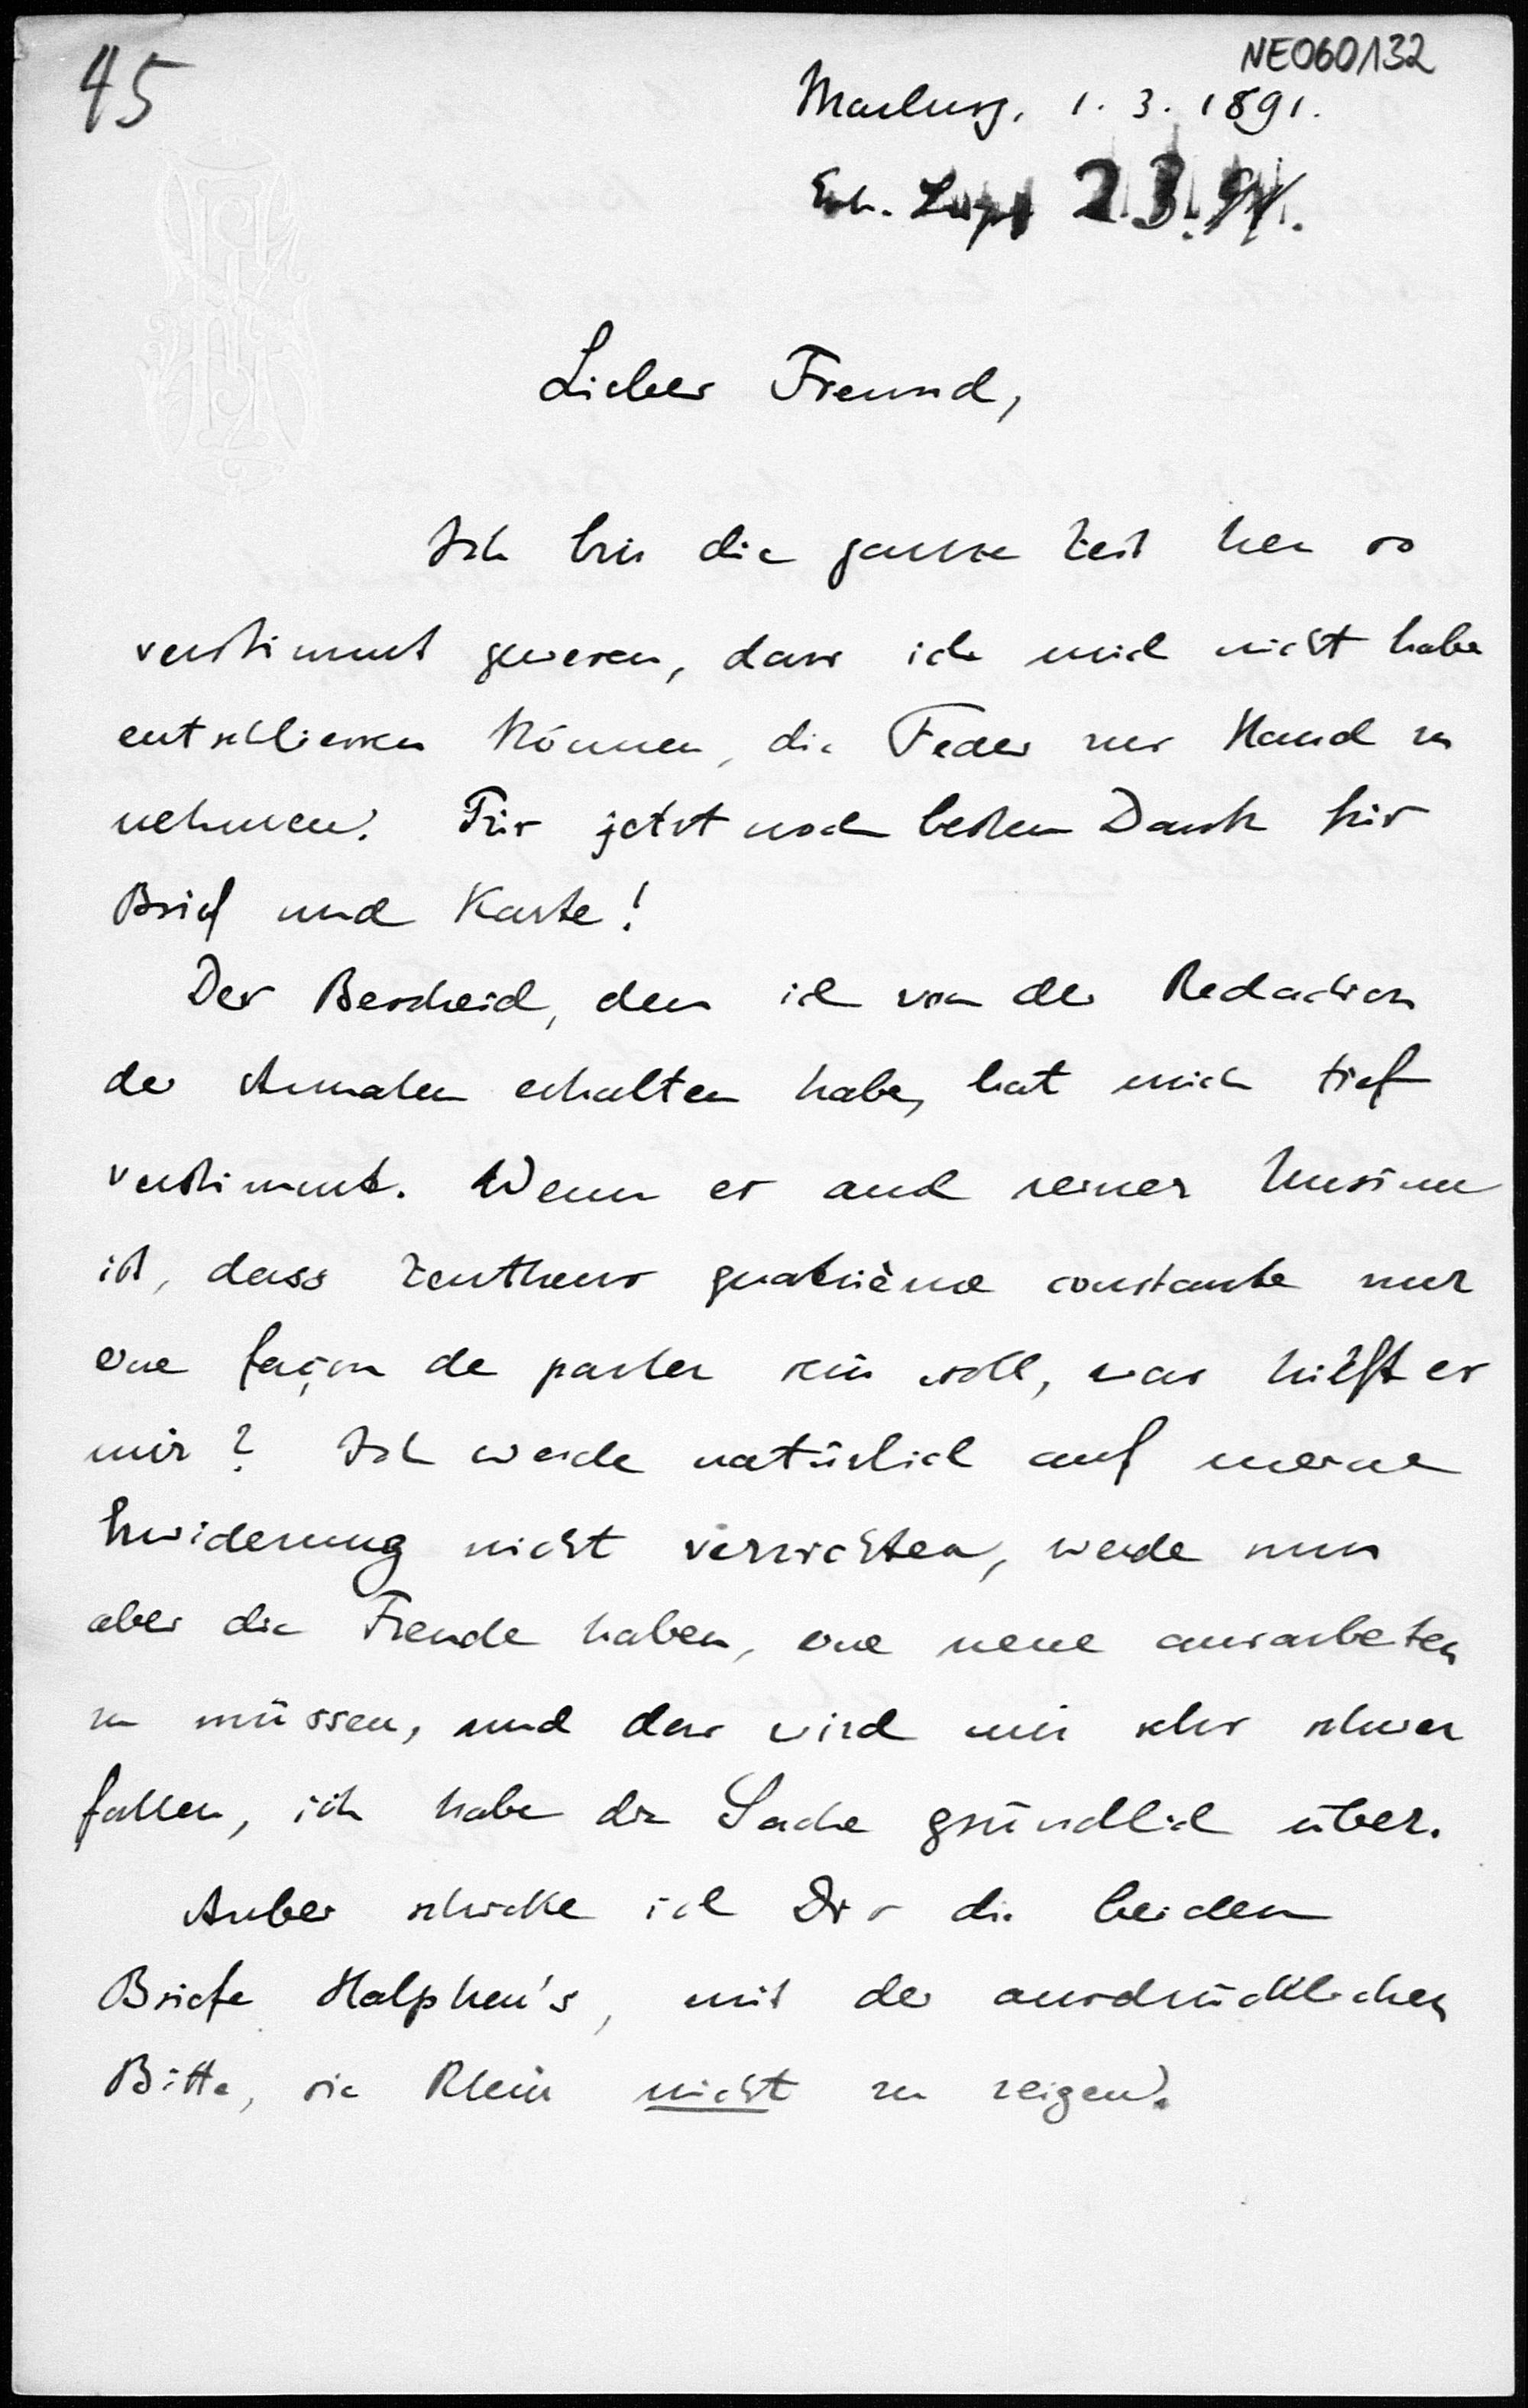 45
NE060/132
Marburg, 1. 3. 1891.
Erh. Lpzg 2.3.91.
Lieber Freund,
Ich bin die ganze Zeit her so
verstimmt gewesen, dass ich mich nicht habe
entschliessen können, die Feder zur Hand zu
nehmen. Für jetzt noch besten Dank für
Brief und Karte!
Der Bescheid, den ich von der Redaction
der Annalen erhalten habe, hat mich tief
verstimmt. Wenn es auch reiner Unsinn
ist, dass Zeuthens quatrième constante nur
eine façon de parler sein soll, was hilft es
mir? Ich werde natürlich auf meine
Erwiderung nicht verzichten, werde nun
aber die Freude haben, eine neue ausarbeiten
zu müssen, und das wird mir sehr schwer
fallen, ich habe die Sache gründlich über.
Anbei schicke ich Dir die beiden
Briefe Halphen's, mit der ausdrücklichen
Bitte, sie Klein nicht zu zeigen.